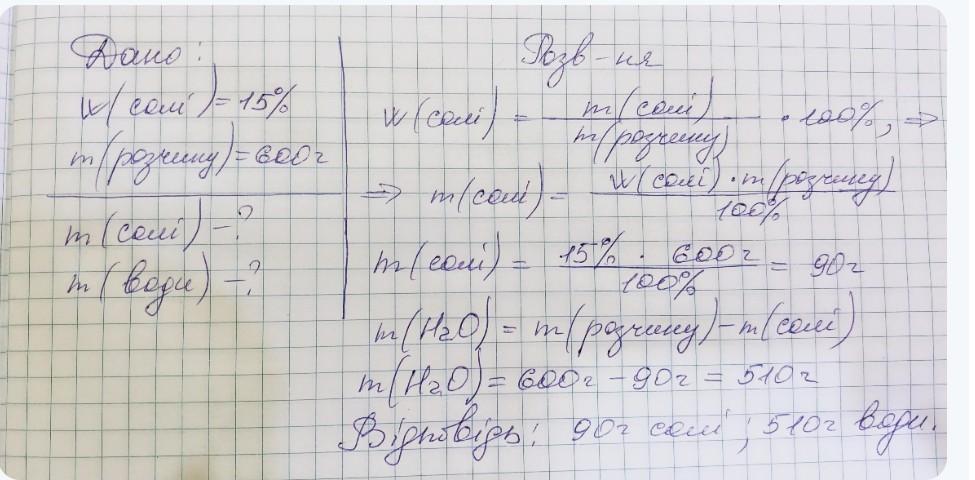 Дано:
w(солі)=15%
m(розчину)=600г
m(солі)-?
m(води)-?
Розв-ня
w(солі) = m(солі) / m(розчину) · 100%, ⇒
⇒ m(солі) = w(солі)·m(розчину) / 100%
m(солі) = 15% · 600г / 100% = 90г
m(H₂O) = m(розчину)-m(солі)
m(H₂O) = 600г - 90г = 510г
Відповідь: 90г солі; 510г води.